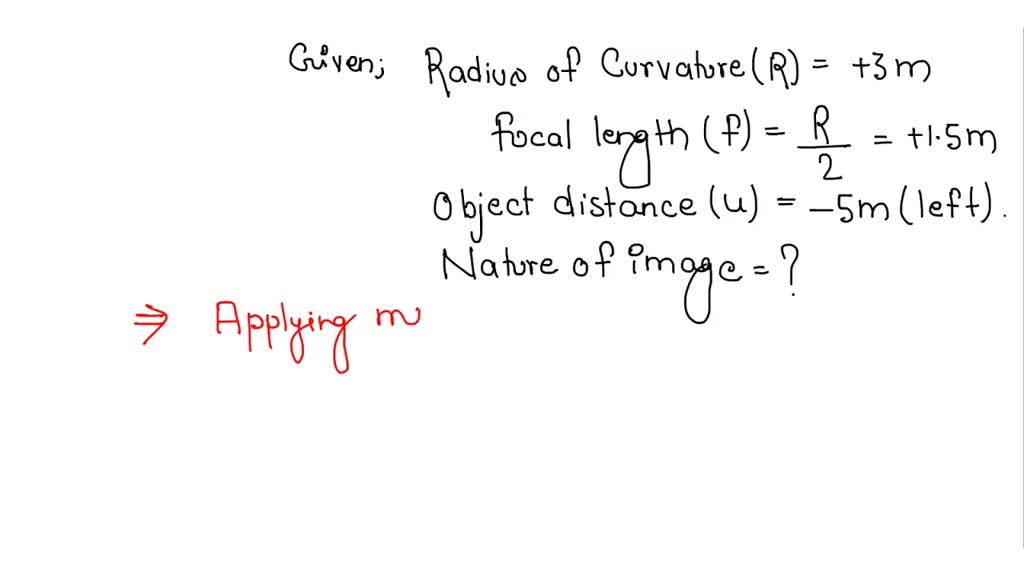 Given; Radius of Curvature (R) = +3m
focal length (f) = R/2 = +1.5m
Object distance (u) = -5m (left).
Nature of image = ?
⇒ Applying m